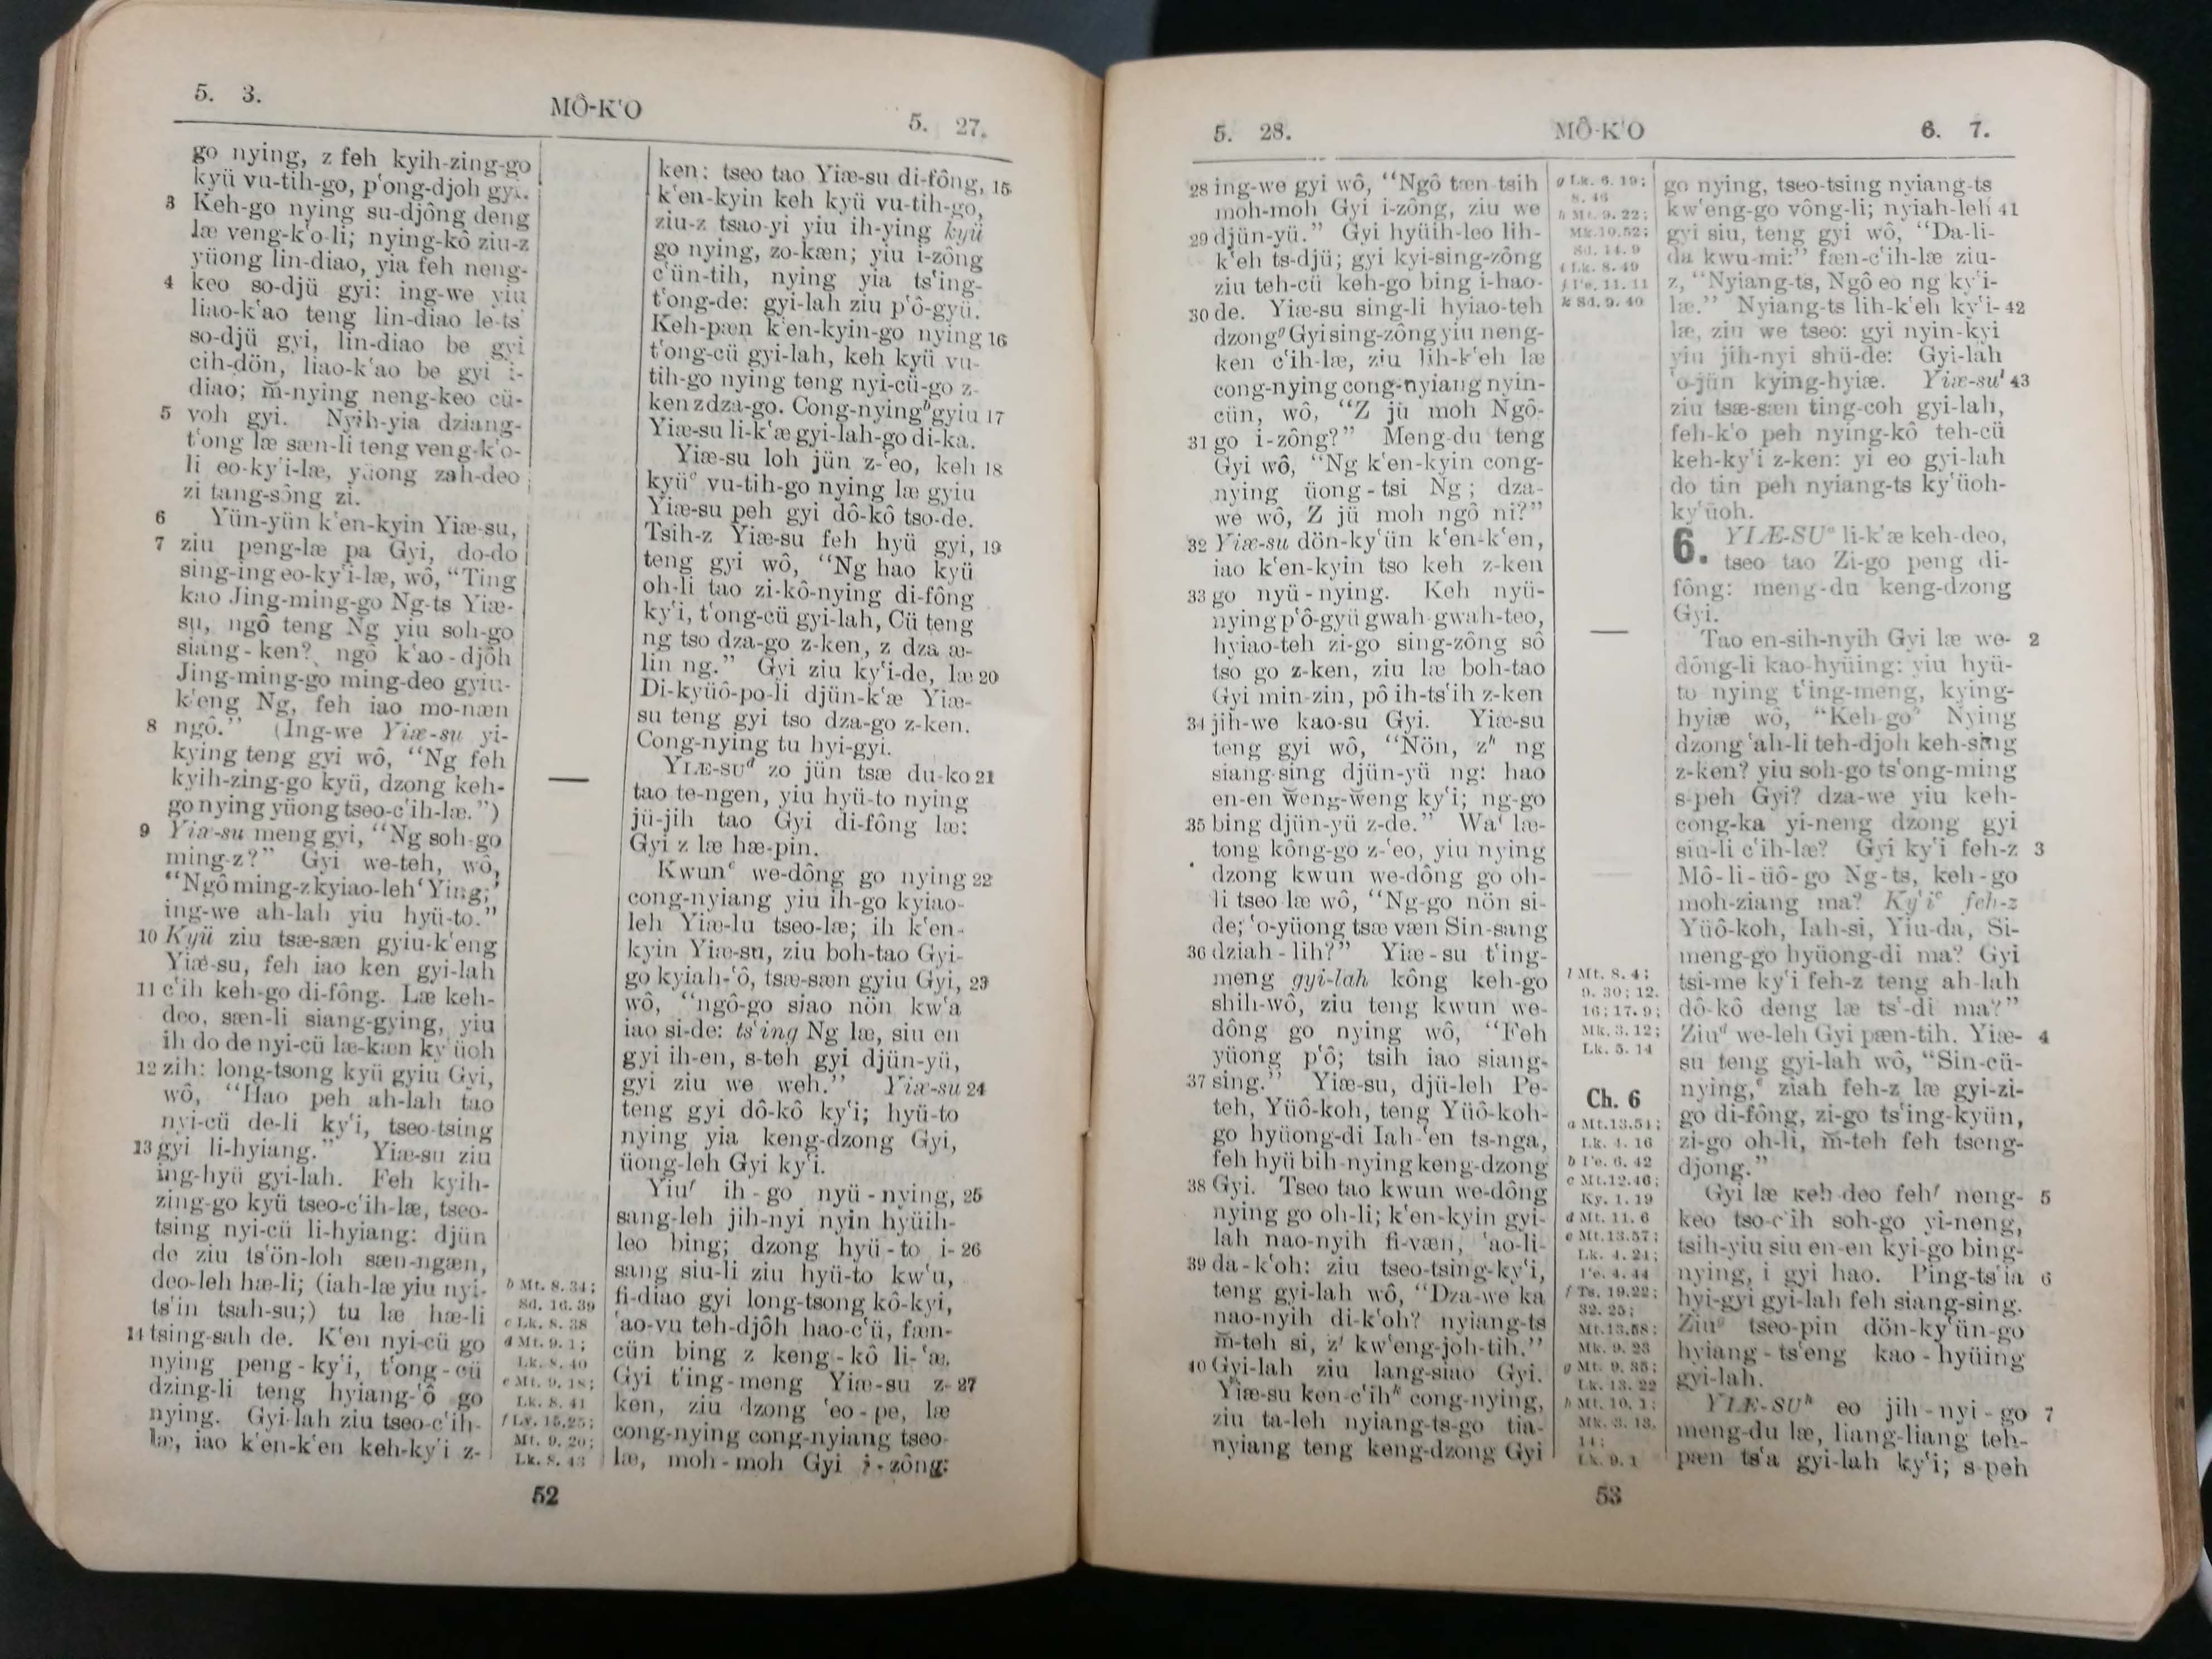 5. 3.
MÔ-K‘O
5. 27.
go nying, z feh kyih-zing-go
kyü vu-tih-go, p‘ong-djoh gyi.
3 Keh-go nying su-djông deng
læ veng-k‘o-li; nying-kô ziu-z
yüong lin-diao, yia feh neng-
4 keo so-djü gyi: ing-we yiu
liao-k‘ao teng lin-diao le-ts‘
so-djü gyi, lin-diao be gyi
cih-dön, liao-k‘ao be gyi i-
diao; m̆-nying neng-keo cü-
5 voh gyi. Nyih-yia dziang-
t‘ong læ sæn-li teng veng-k‘o-
li eo-ky‘i-læ, yüong zah-deo
zi tang-sông zi.
6 Yün-yün k‘en-kyin Yiæ-su,
7 ziu peng-læ pa Gyi, do-do
sing-ing eo-ky‘i-læ, wô, “Ting
kao Jing-ming-go Ng-ts Yiæ-
su, ngô teng Ng yiu soh-go
siang-ken? ngô k‘ao-djôh
Jing-ming-go ming-deo gyiu-
k‘eng Ng, feh iao mo-næn
8 ngô.” (Ing-we Yiæ-su yi-
kying teng gyi wô, “Ng feh
kyih-zing-go kyü, dzong keh-
go nying yüong tseo-c‘ih-læ.”)
9 Yiæ-su meng gyi, “Ng soh-go
ming-z?” Gyi we-teh, wô,
“Ngô ming-z kyiao-leh ‘Ying;’
ing-we ah-lah yiu hyü-to.”
10 Kyü ziu tsæ-sæn gyiu-k‘eng
Yiæ-su, feh iao ken gyi-lah
11 c‘ih keh-go di-fông. Læ keh-
deo, sæn-li siang-gying, yiu
ih do de nyi-cü læ-kæn ky‘üoh
12 zih: long-tsong kyü gyiu Gyi,
wô, “Hao peh ah-lah tao
nyi-cü de-li ky‘i, tseo-tsing
13 gyi li-hyiang.” Yiæ-su ziu
ing-hyü gyi-lah. Feh kyih-
zing-go kyü tseo-c‘ih-læ, tseo-
tsing nyi-cü li-hyiang: djün
de ziu ts‘ön-loh sæn-ngæn,
deo-leh hæ-li; (iah-læ yiu nyi-
ts‘in tsah-su;) tu læ hæ-li
14 tsing-sah de. K‘en nyi-cü go
nying peng-ky‘i, t‘ong-cü
dzing-li teng hyiang-‘ô go
nying. Gyi-lah ziu tseo-c‘ih-
læ, iao k‘en-k‘en keh-ky‘i z-
b Mt. 8. 34;
Sd. 16. 39
c Lk. 8. 38
d Mt. 9. 1;
Lk. 8. 40
e Mt. 9. 18;
Lk. 8. 41
f Lv. 15.25;
Mt. 9. 20;
Lk. 8. 43
ken: tseo tao Yiæ-su di-fông, 15
k‘en-kyin keh kyü vu-tih-go,
ziu-z tsao-yi yiu ih-ying kyü
go nying, zo-kæn; yiu i-zông
c‘ün-tih, nying yia ts‘ing-
t‘ong-de: gyi-lah ziu p‘ô-gyü.
Keh-pæn k‘en-kyin-go nying 16
t‘ong-cü gyi-lah, keh kyü vu-
tih-go nying teng nyi-cü-go z-
ken z dza-go. Cong-nyingb gyiu 17
Yiæ-su li-k‘æ gyi-lah-go di-ka.
Yiæ-su loh jün z-‘eo, keh 18
kyüc vu-tih-go nying læ gyiu
Yiæ-su peh gyi dô-kô tso-de.
Tsih-z Yiæ-su feh hyü gyi, 19
teng gyi wô, “Ng hao kyü
oh-li tao zi-kô-nying di-fông
ky‘i, t‘ong-cü gyi-lah, Cü teng
ng tso dza-go z-ken, z dza æ-
lin ng.” Gyi ziu ky‘i-de, læ 20
Di-kyüô-po-li djün-k‘æ Yiæ-
su teng gyi tso dza-go z-ken.
Cong-nying tu hyi-gyi.
YIÆ-SUd zo jün tsæ du-ko 21
tao te-ngen, yiu hyü-to nying
jü-jih tao Gyi di-fông læ:
Gyi z læ hæ-pin.
Kwune we-dông go nying 22
cong-nyiang yiu ih-go kyiao-
leh Yiæ-lu tseo-læ; ih k‘en-
kyin Yiæ-su, ziu boh-tao Gyi-
go kyiah-‘ô, tsæ-sæn gyiu Gyi, 23
wô, “ngô-go siao nön kw‘a
iao si-de: ts‘ing Ng læ, siu en
gyi ih-en, s-teh gyi djün-yü,
gyi ziu we weh.” Yiæ-su 24
teng gyi dô-kô ky‘i; hyü-to
nying yia keng-dzong Gyi,
üong-leh Gyi ky‘i.
Yiuf ih-go nyü-nying, 25
sang-leh jih-nyi nyin hyüih-
leo bing; dzong hyü-to i- 26
sang siu-li ziu hyü-to kw‘u,
fi-diao gyi long-tsong kô-kyi,
‘ao-vu teh-djôh hao-c‘ü, fæn-
cün bing z keng-kô li-‘æ.
Gyi t‘ing-meng Yiæ-su z- 27
ken, ziu dzong ‘eo-pe, læ
cong-nying cong-nyiang tseo-
læ, moh-moh Gyi i-zông:
52
5. 28.
MÔ-K‘O
6. 7.
28 ing-we gyi wô, “Ngô tæn tsih
moh-moh Gyi i-zông, ziu we
29 djün-yü.” Gyi hyüih-leo lih-
k‘eh ts-djü; gyi kyi-sing-zông
ziu teh-cü keh-go bing i-hao-
30 de. Yiæ-su sing-li hyiao-teh
dzongg Gyi sing-zông yiu neng-
ken c‘ih-læ, ziu lih-k‘eh læ
cong-nying cong-nyiang nyin-
cün, wô, “Z jü moh Ngô-
31 go i-zông?” Meng-du teng
Gyi wô, “Ng k‘en-kyin cong-
nying üong-tsi Ng; dza-
we wô, Z jü moh ngô ni?”
32 Yiæ-su dön-ky‘ün k‘en-k‘en,
iao k‘en-kyin tso keh z-ken
33 go nyü-nying. Keh nyü-
nying p‘ô-gyü gwah-gwah-teo,
hyiao-teh zi-go sing-zông sô
tso go z-ken, ziu læ boh-tao
Gyi min-zin, pô ih-ts‘ih z-ken
34 jih-we kao-su Gyi. Yiæ-su
teng gyi wô, “Nön, zh ng
siang-sing djün-yü ng: hao
en-en w̆eng-w̆eng ky‘i; ng-go
35 bing djün-yü z-de.” Wai læ-
tong kông-go z-‘eo, yiu nying
dzong kwun we-dông go oh-
li tseo læ wô, “Ng-go nön si-
de; ‘o-yüong tsæ væn Sin-sang
36 dziah-lih?” Yiæ-su t‘ing-
meng gyi-lah kông keh-go
shih-wô, ziu teng kwun we-
dông go nying wô, “Feh
yüong p‘ô; tsih iao siang-
37 sing.” Yiæ-su, djü-leh Pe-
teh, Yüô-koh, teng Yüô-koh-
go hyüong-di Iah-‘en ts-nga,
feh hyü bih-nying keng-dzong
38 Gyi. Tseo tao kwun we-dông
nying go oh-li; k‘en-kyin gyi-
lah nao-nyih fi-væn, ‘ao-li-
39 da-k‘oh: ziu tseo-tsing-ky‘i,
teng gyi-lah wô, “Dza-we ka
nao-nyih di-k‘oh? nyiang-ts
m̆-teh si, zj kw‘eng-joh-tih.”
40 Gyi-lah ziu lang-siao Gyi.
Yiæ-su ken-c‘ihk cong-nying,
ziu ta-leh nyiang-ts-go tia-
nyiang teng keng-dzong Gyi
g Lk. 6. 19;
8. 46
h Mt. 9. 22;
Mk.10.52;
Sd. 14. 9
i Lk. 8. 49
j I‘e. 11. 11
k Sd. 9. 40
l Mt. 8. 4;
9. 30; 12.
16; 17. 9;
Mk. 3. 12;
Lk. 5. 14
Ch. 6
a Mt.13.54;
Lk. 4. 16
b I‘e. 6. 42
c Mt.12.46;
Ky. 1. 19
d Mt. 11. 6
e Mt.13.57;
Lk. 4. 24;
I‘e. 4. 44
f Ts. 19.22;
32. 25;
Mt.13.58;
Mk. 9. 23
g Mt. 9. 35;
Lk. 13. 22
h Mt. 10. 1;
Mk. 3. 13,
14;
Lk. 9. 1
go nying, tseo-tsing nyiang-ts
kw‘eng-go vông-li; nyiah-leh 41
gyi siu, teng gyi wô, “Da-li-
da kwu-mi:” fæn-c‘ih-læ ziu-
z, “Nyiang-ts, Ngô eo ng ky‘i-
læ.” Nyiang-ts lih-k‘eh ky‘i- 42
læ, ziu we tseo: gyi nyin-kyi
yiu jih-nyi shü-de: Gyi-lah
‘o-jün kying-hyiæ. Yiæ-sul 43
ziu tsæ-sæn ting-coh gyi-lah,
feh-k‘o peh nying-kô teh-cü
keh-ky‘i z-ken: yi eo gyi-lah
do tin peh nyiang-ts ky‘üoh-
ky‘üoh.
6. YIÆ-SUa li-k‘æ keh-deo,
tseo tao Zi-go peng di-
fông: meng-du keng-dzong
Gyi.
Tao en-sih-nyih Gyi læ we- 2
dông-li kao-hyüing: yiu hyü-
to nying t‘ing-meng, kying-
hyiæ wô, “Keh-gob Nying
dzong ‘ah-li teh-djoh keh-sing
z-ken? yiu soh-go ts‘ong-ming
s-peh Gyi? dza-we yiu keh-
cong-ka yi-neng dzong gyi
siu-li c‘ih-læ? Gyi ky‘i feh-z 3
Mô-li-üô-go Ng-ts, keh-go
moh-ziang ma? Ky‘ic feh-z
Yüô-koh, Iah-si, Yiu-da, Si-
meng-go hyüong-di ma? Gyi
tsi-me ky‘i feh-z teng ah-lah
dô-kô deng læ ts‘-di ma?”
Ziud we-leh Gyi pæn-tih. Yiæ- 4
su teng gyi-lah wô, “Sin-cü-
nying,e ziah feh-z læ gyi-zi-
go di-fông, zi-go ts‘ing-kyün,
zi-go oh-li, m̆-teh feh tseng-
djong.”
Gyi læ keh-deo fehf neng- 5
keo tso-c‘ih soh-go yi-neng,
tsih-yiu siu en-en kyi-go bing-
nying, i gyi hao. Ping-ts‘ia 6
hyi-gyi gyi-lah feh siang-sing.
Ziug tseo-pin dön-ky‘ün-go
hyiang-ts‘eng kao-hyüing
gyi-lah.
YIÆ-SUh eo jih-nyi-go 7
meng-du læ, liang-liang teh-
pæn ts‘a gyi-lah ky‘i; s-peh
53